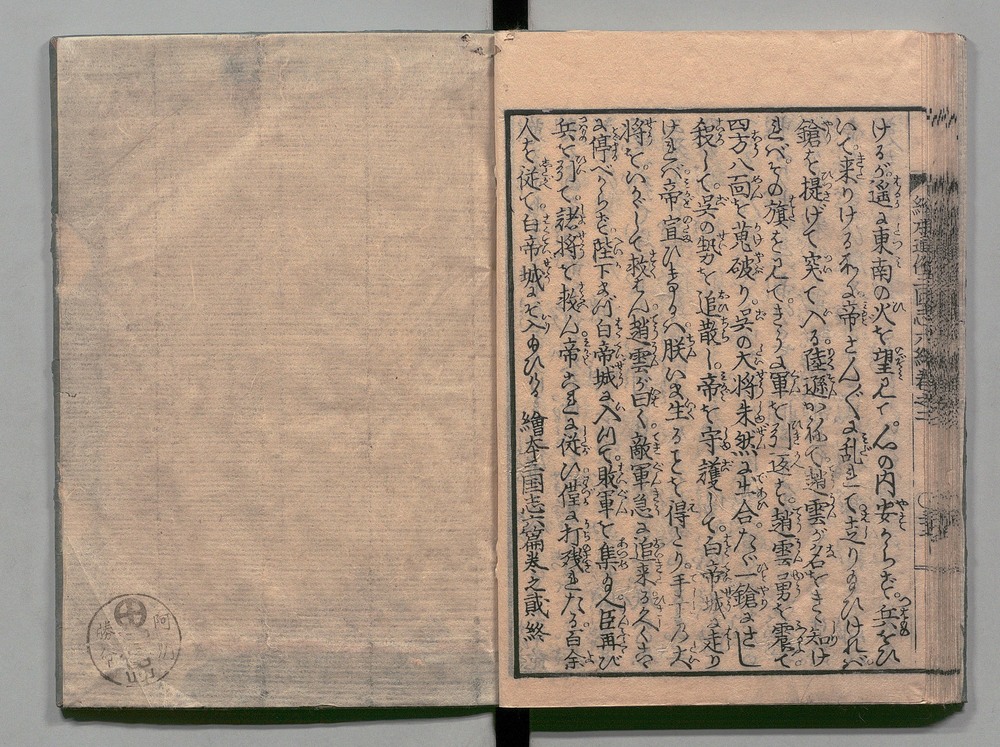 けるが遥に東南の火を望見て心の内安からず兵をひ
いて来りける所に帝さんざんに乱れて走り玉ひければ
鎗を提げて突て入る陸遜かねて趙雲が名をきゝ知け
ればその旗を見てきうに軍を引返す趙雲勇を震て
四方八面を蒐破り呉の大将朱然に出合たゞ一鎗にさし
殺して呉の勢を追散し帝を守護して白帝城に走り
ければ帝宣ひけるハ朕いま生ることを得たり手下の大
将をいかゞして救はん趙雲が曰く敵軍急に追来る久く
に停べからず陛下まづ白帝城に入て敗軍を集め玉へ臣再び
兵を引て諸将を救ん帝これに従ひ僅に打残されたる百余
人を従て白帝城にぞ入玉ひける 繪本三国志六篇巻之貳終
繪本通俗三国志六編巻之二